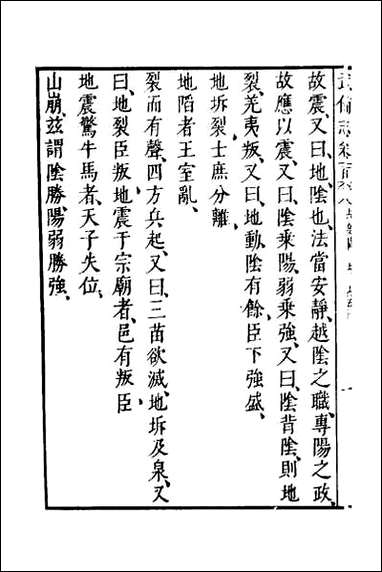 武備志卷
故震又曰地陰也法當安靜越陰之職專陽之政
故應以震又曰陰乘陽弱乘強又曰陰背陰則地
裂羌夷叛又曰地動陰有餘臣下強盛
地坼裂士庶分離
地陷者王室亂
裂而有聲四方兵起又曰三苗欲滅地坼及泉又
曰地裂臣叛地震于宗廟者邑有叛臣
地震驚牛馬者天子失位
山崩茲謂陰勝陽弱勝強